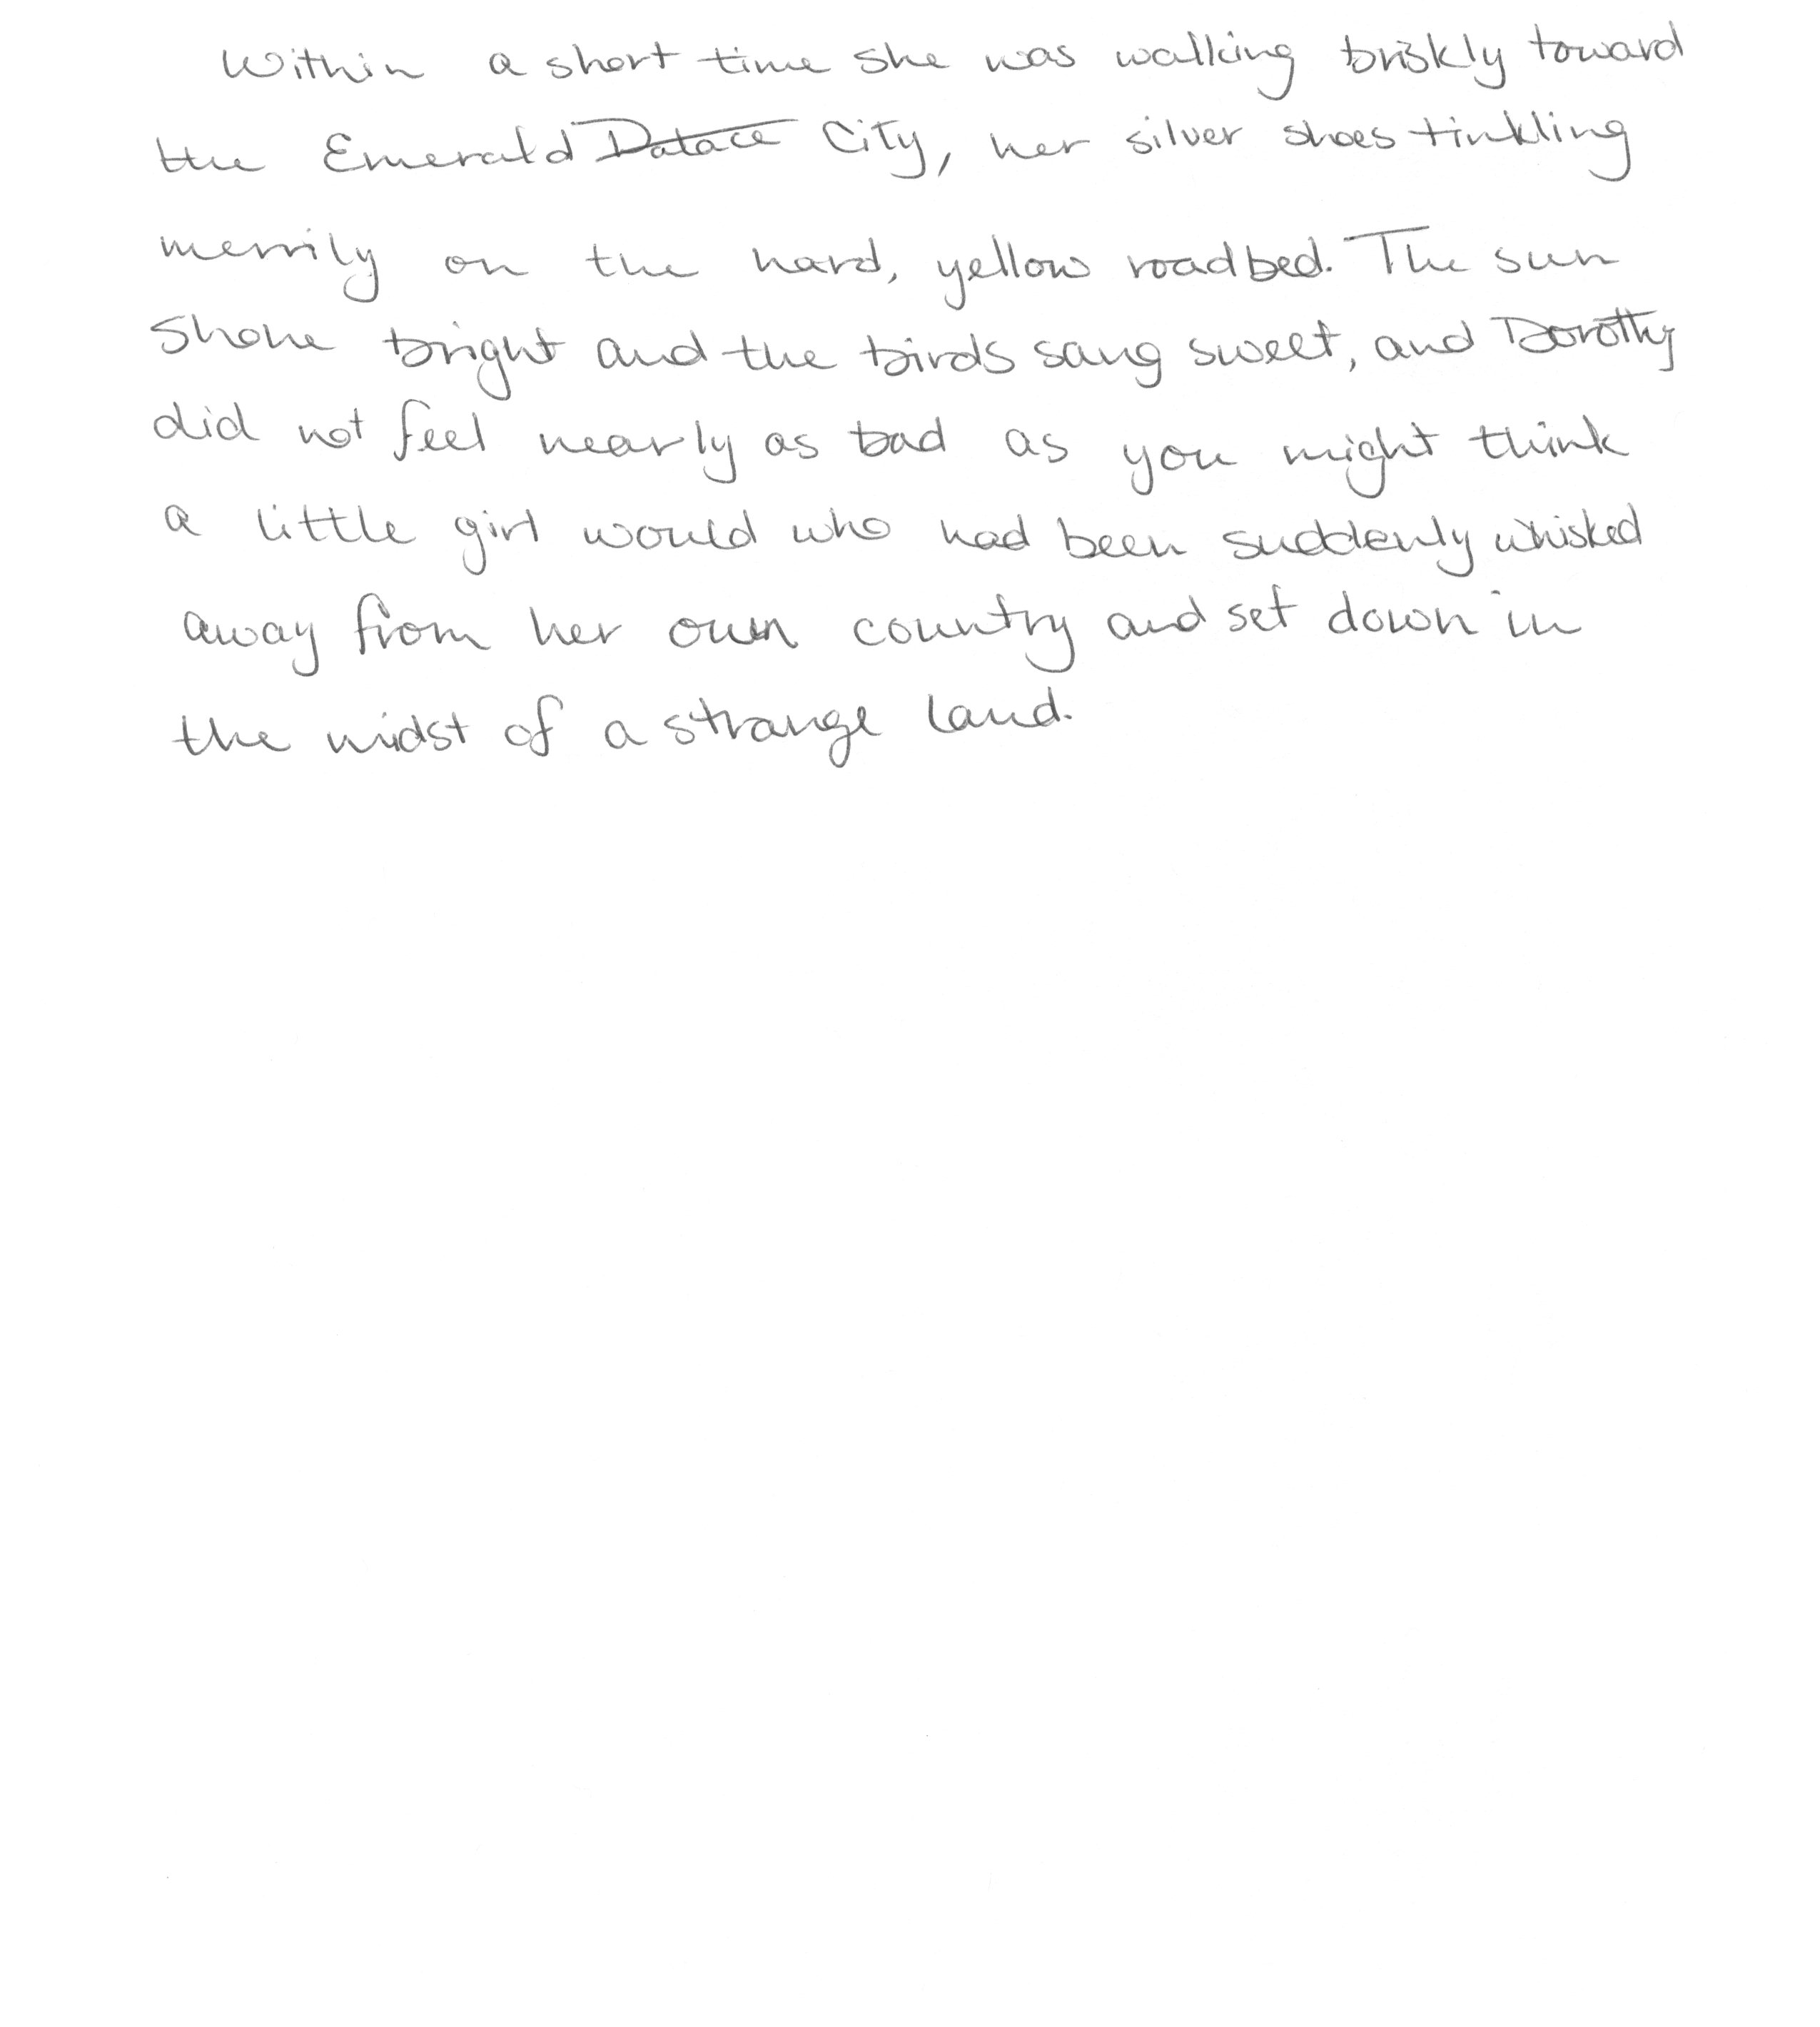 Within a short time she was walking briskly toward
the Emerald Palace City, her silver shoes tinkling
merrily on the hard, yellow roadbed. The sun
shone bright and the birds sang sweet, and Dorothy
did not feel nearly as bad as you might think
a little girl would who had been suddenly whisked
away from her own country and set down in
the midst of a strange land.